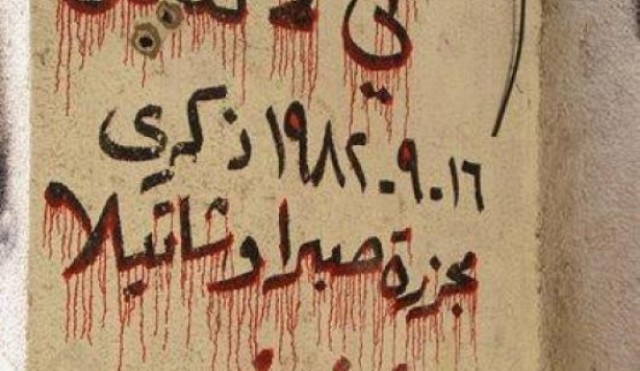 ١٩٨٢.٩.١٦ ذكرى
مجزرة صبرا وشاتيلا